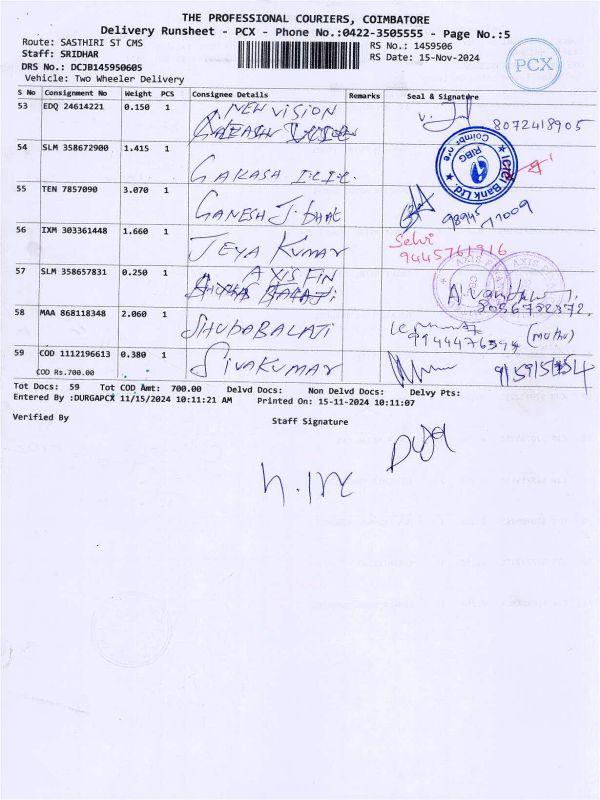 THE PROFESSIONAL COURIERS, COIMBATORE
Delivery Runsheet - PCX - Phone No.:0422-3505555 - Page No.:5
Route: SASTHIRI ST CMS
RS No.: 1459506
Staff: SRIDHAR
RS Date: 15-Nov-2024
PCX
DRS No.: DCJB145950605
Vehicle: Two Wheeler Delivery
S No Consignment No Weight PCS Consignee Details Remarks Seal & Signature
53 EDQ 24614221 0.150 1 NEW VISION
8072418905
54 SLM 358672900 1.415 1 GAKASH
ICICI Bank Ltd. Coimbatore
RIBG
55 TEN 7857090 3.070 1 GANESH J. bhat
98945 77009
56 IXM 303361448 1.660 1 JEYA KUMAR
Selvi
9445761916
57 SLM 358657831 0.250 1 AXIS FIN
BALAJI
AXIS
58 MAA 868118348 2.060 1 SHUBABALAJI
(muthu)
59 COD 1112196613 0.380 1 SIVAKUMAR
COD Rs.700.00
Tot Docs: 59 Tot COD Amt: 700.00 Delvd Docs: Non Delvd Docs: Delvy Pts:
Entered By :DURGAPCX 11/15/2024 10:11:21 AM Printed On: 15-11-2024 10:11:07
Verified By
Staff Signature